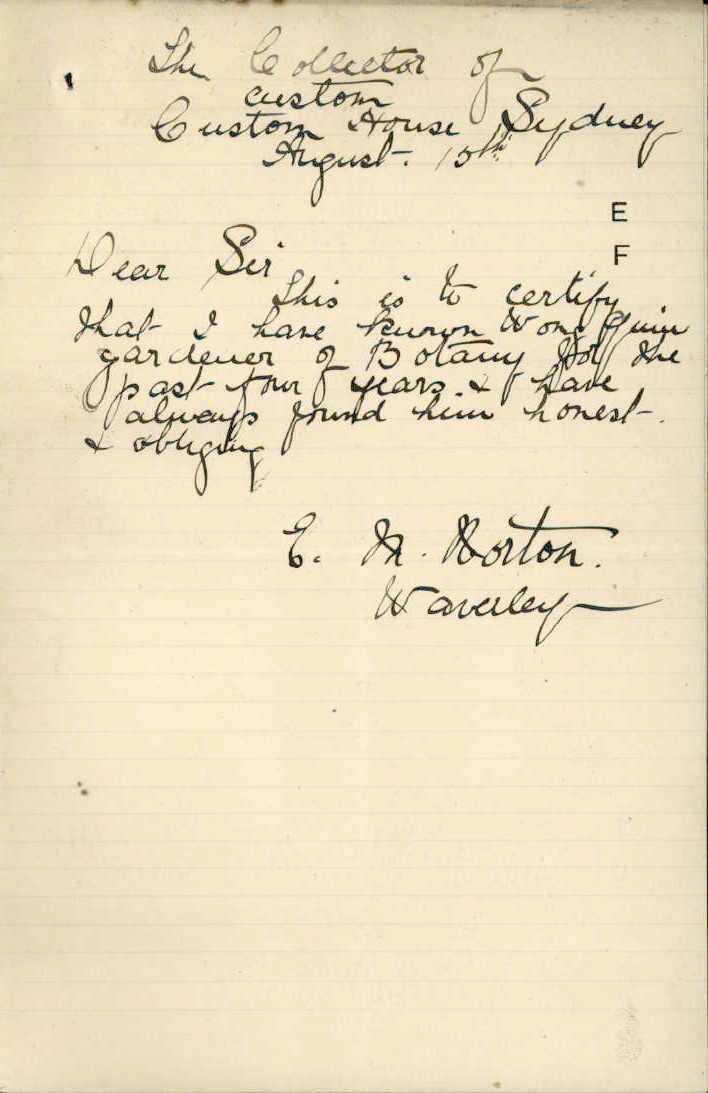 The Collector of
custom
Custom House Sydney
August. 15th
E
F
Dear Sir
This is to certify
that I have known Wong Quin
gardener of Botany for the
past four years & have
always found him honest.
& obliging
E. M. Norton.
Waverley